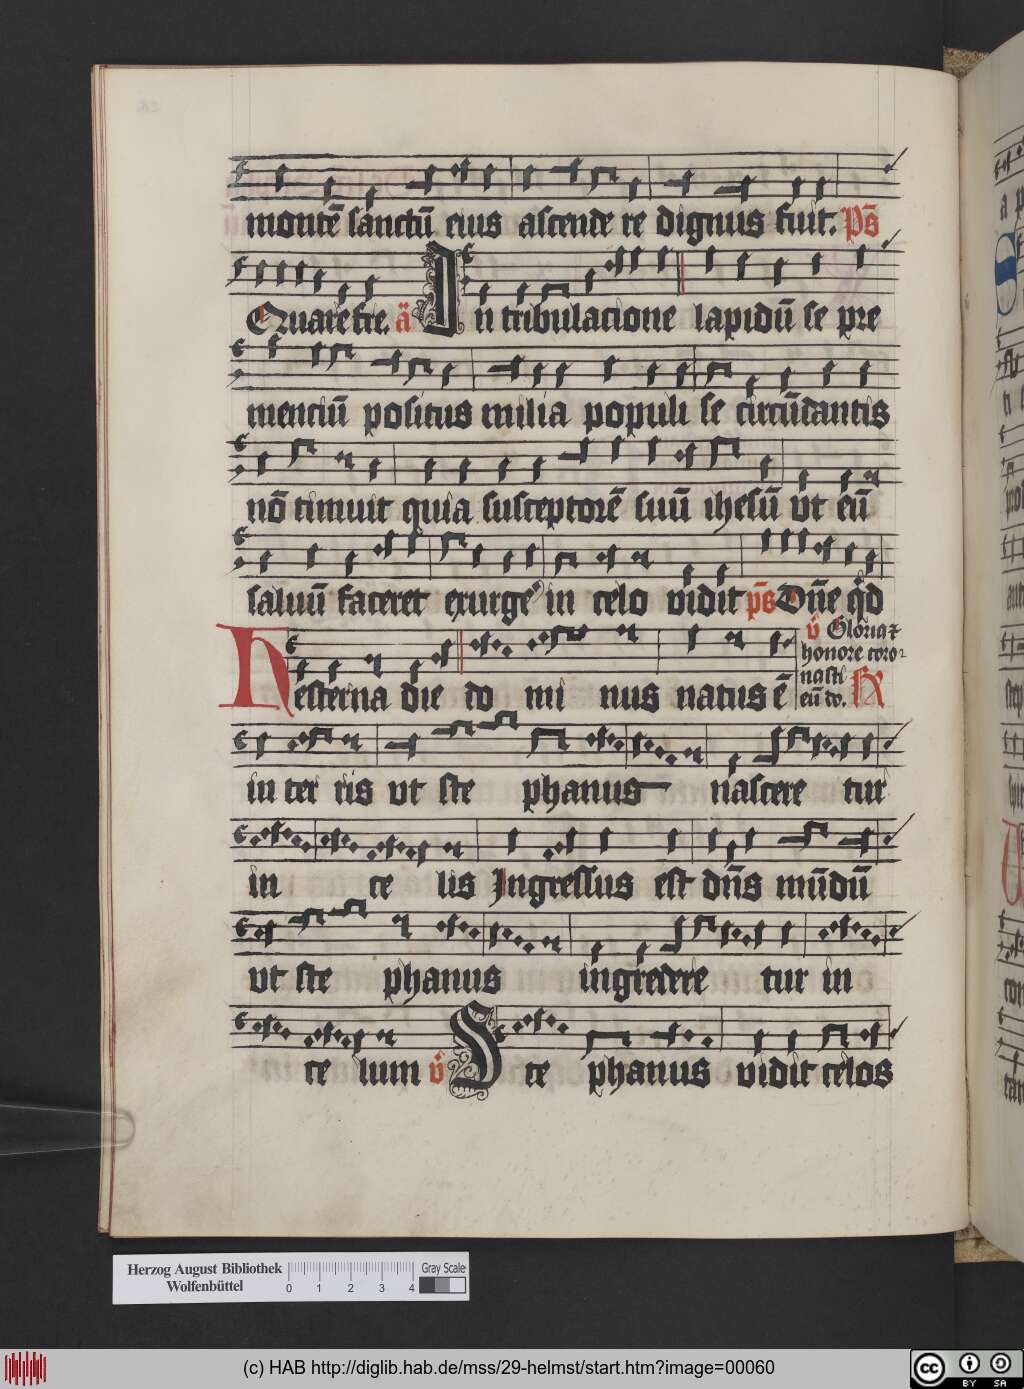 montē sanctū eius ascende re dignus fuit. p̄s
Quare fre. ā In tribulacione lapidū se pre
menciū positus milia populi se circūdantis
nō timuit quia susceptorē suū ihesū vt eū
saluū faceret exurgē in celo vidit p̄s Dn̄e qd
v̄ Gloria et
honore coro-
nasti
eū do. R
Hesterna die do mi nus natus ē
in ter ris vt ste phanus nascere tur
in ce lis Ingressus est dn̄s mūdū
vt ste phanus ingredere tur in
ce lum v̄ Ste phanus vidit celos
Herzog August Bibliothek
Wolfenbüttel
0 1 2 3 4
Gray Scale
(c) HAB http://diglib.hab.de/mss/29-helmst/start.htm?image=00060
cc BY SA